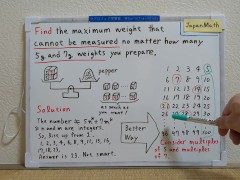 JapanMath
Find the maximum weight that
cannot be measured no matter how many
5g and 7g weights you prepare.
pepper
as much as
you want!
Solution
The number ≠ 5m + 7n
※ m and n are integers.
So, list up from 1.
1, 2, 3, 4, 6, 8, 9, 11, 13, 16,
17, 18, 23,
Answer is 23. Not smart.
Better
Way
1 2 3 4 5
6 7 8 9 10
11 12 13 14 15
16 17 18 19 20
21 22 23 24 25
Consider multiples
of 5 and multiples